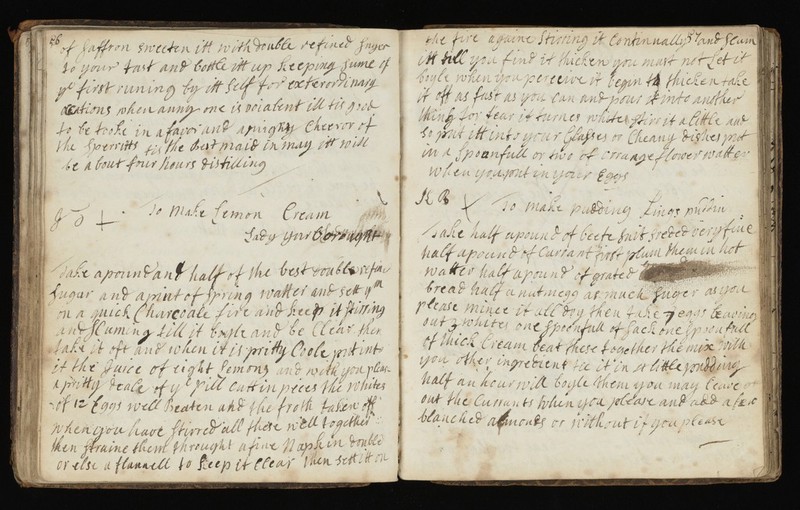 56
of Saffron sweeten itt with double refined Suger
to your tast and bottle itt up keeping sume of
ye first runing by itt self for exterordinary
when aung one is violent ill tis good
to be tooke in a favor and a mighty Cheeror of
the Sperritts tis the best maid in may itt will
be about four hours distilling
To Make Lemon Cream
Lady
Take a pound and half of the best double refin
Sugar and a print of Spring watter and sett
on a quick Charcoale fire and keep it stirring
and Scuming till it boyle and be Clear then
take it oft and when it is pritty Coole put int
it the Juice of eight lemons and with you pleas
a pritty deale of ye pill cutt in peices the whites
of 12 Eggs well Beaten and the froth taken off
when you have stirred all these well together
then straine them throught a fine Napkin double
or else a flannell to keep it Clear then sett itt on
the fire againe Stirring it Continually and Scum
itt till you find it thicken you must not Let it
boyle when you perceive it begin to thicken take
it off as fast as you can and pour it into another
thing for fear it turnes white stirr it a little and
so put itt into your Glasses or Cheany dishes put
in a Spoonfull or two of orrange flower watter
when you put in your Eggs
To make pudding Kings
Take half a pound of beefe suit sreded very fine
half a pound of Currant first plum them in hot
watter half a pound of grated
bread half a nutmego as much Suger as you
please mince it all dry then take 7 eggs leaving
out 3 whites one spoonfull of Sack one spoonfull
of thick Cream beat these together the mix with
you other ingredient tie it in a little pudding
half an hour will boyle them you may leave
out the Currants when you please and add a few
blanched almonds or without if you please